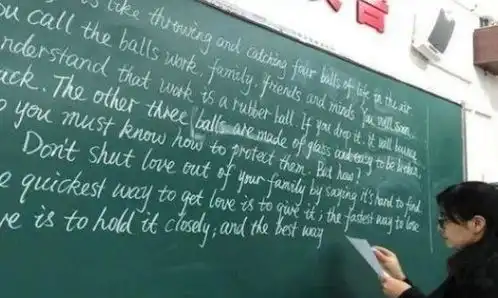 is like throwing and catching four balls of life in the air.
ou call the balls work, family, friends and minds You will soon
nderstand that work is a rubber ball. If you drop it, it will bounce
ack. The other three balls are made of glass and easy to be broken,
o you must know how to protect them. But how?
Don't shut love out of your family by saying it's hard to find.
e quickest way to get love is to give it; the fastest way to lose
ve is to hold it closely; and the best way